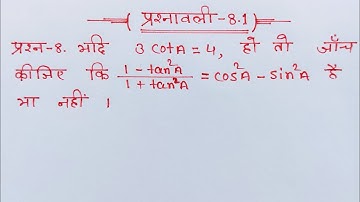 ( प्रश्नावली-8.1 )
प्रश्न-8. यदि 3 cotA = 4, हो तो जाँच
कीजिए कि (1 - tan²A)/(1 + tan²A) = cos²A - sin²A है
या नहीं ।